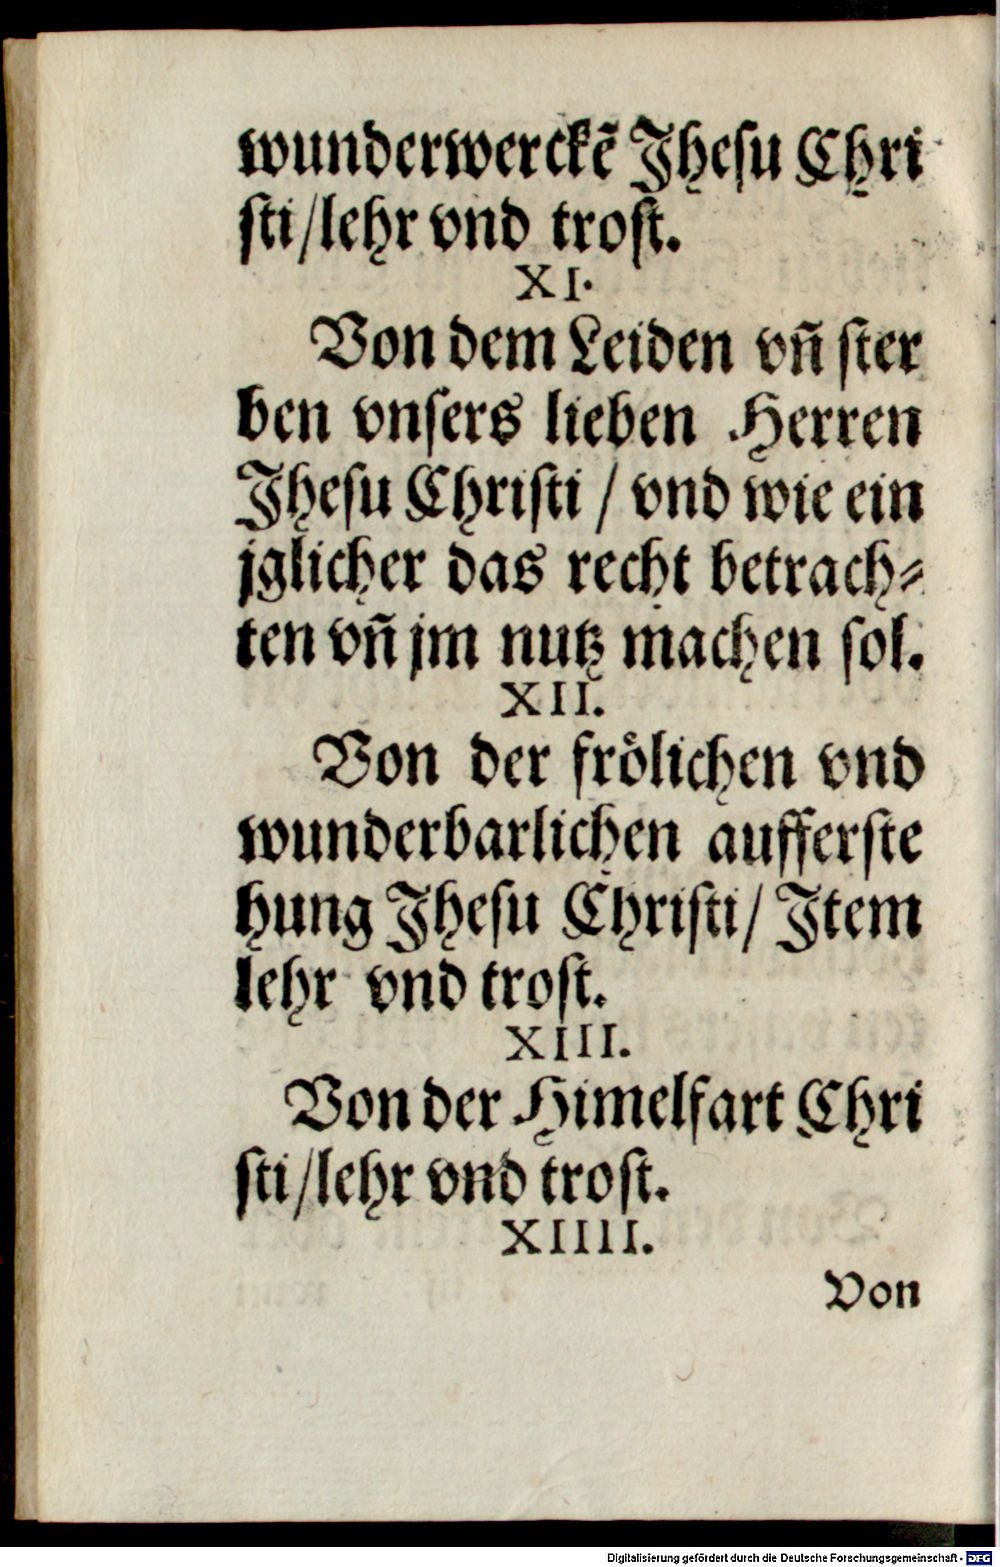 wunderwerckẽ Jhesu Chri
sti/lehr vnd trost.
XI.
Von dem Leiden vñ ster
ben vnsers lieben Herren
Jhesu Christi / vnd wie ein
jglicher das recht betrach⸗
ten vñ jm nutz machen sol.
XII.
Von der frölichen vnd
wunderbarlichen aufferste
hung Jhesu Christi/ Jtem
lehr vnd trost.
XIII.
Von der Himelfart Chri
sti/lehr vnd trost.
XIIII.
Von
Digitalisierung gefördert durch die Deutsche Forschungsgemeinschaft - DFG